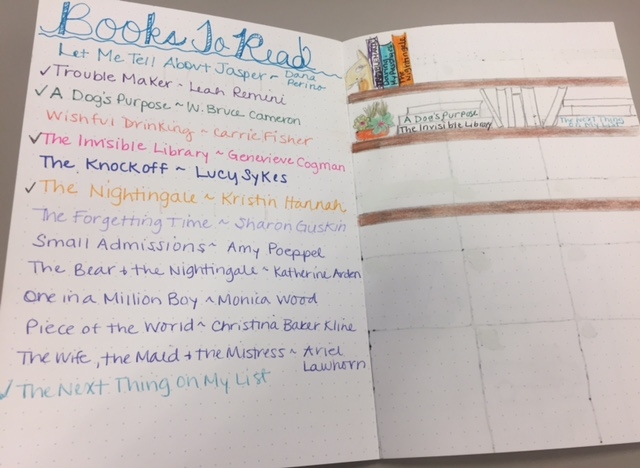 Books To Read
Let Me Tell About Jasper ~ Dana
Perino
✓Trouble Maker ~ Leah Remini
✓A Dog's Purpose ~ W. Bruce Cameron
Wishful Drinking ~ Carrie Fisher
✓The Invisible Library ~ Genevieve Cogman
The Knockoff ~ Lucy Sykes
✓The Nightingale ~ Kristin Hannah
The Forgetting Time ~ Sharon Guskin
Small Admissions ~ Amy Poeppel
The Bear + the Nightingale ~ Katherine Arden
One in a Million Boy ~ Monica Wood
Piece of the World ~ Christina Baker Kline
The Wife, the Maid + the Mistress ~ Ariel
Lawhorn
✓The Next Thing On My List
Nightingale
A Dog's Purpose
The Invisible Library
The Next Thing
On My List